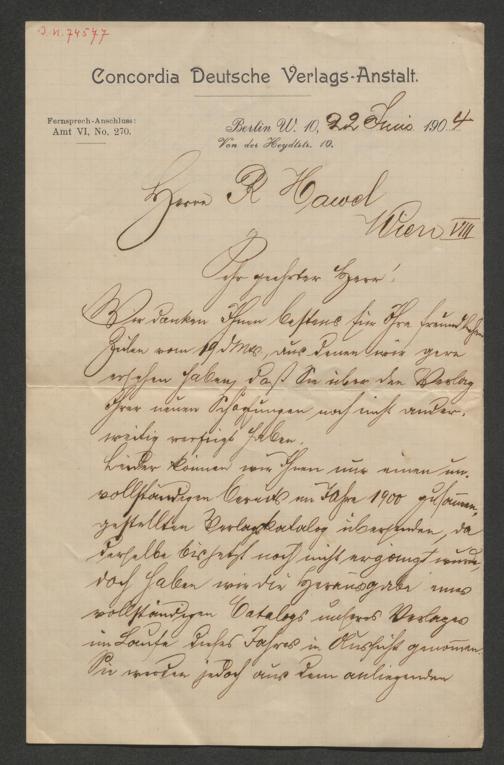 J.N. 74577
Concordia Deutsche Verlags-Anstalt.
Fernsprech-Anschluss:
Amt VI, No. 270.
Berlin W. 10, 22 Juni 1904
Von der Heydtstr. 10.
Herrn R Hawel
Wien VIII
Sehr geehrter Herr!
Wir danken Ihnen bestens für Ihre freundlichen
Zeilen vom 19 d Mts, aus denen wir gern
ersehen haben, daß Sie über den Verlag
Ihrer neuen Schöpfungen noch nicht ander-
weitig verfügt haben.
Leider können wir Ihnen nur einen un-
vollständigen bereits im Jahre 1900 zusammen-
gestellten Verlagskatalog übersenden, da
derselbe bis jetzt noch nicht ergänzt wurde
doch haben wir die Herausgabe eines
vollständigen Catalogs unseres Verlages
im Laufe dieses Jahres in Aussicht genommen.
Sie werden jedoch aus dem anliegenden